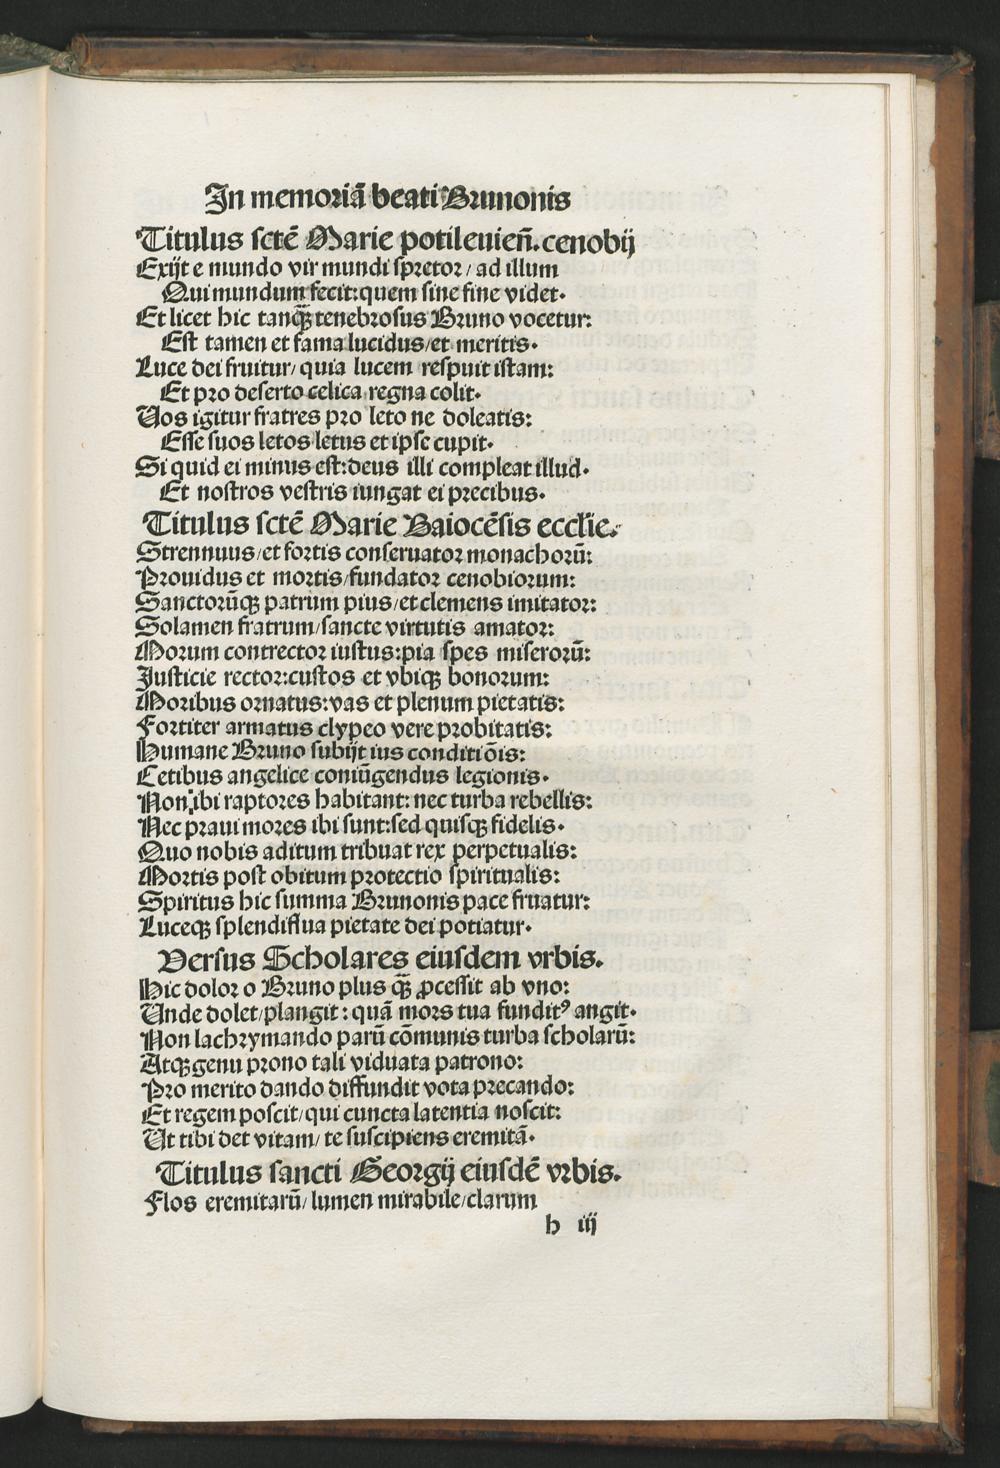 In memoriā beati Brunonis
Titulus sctē Marie potileuien̄. cenobij
Exijt e mundo vir mundi spretor / ad illum
Qui mundum fecit: quem sine fine videt.
Et licet hic tanq̄ȝ tenebrosus Bruno vocetur:
Est tamen et fama lucidus / et meritis.
Luce dei fruitur / quia lucem respuit istam:
Et pro deserto celica regna colit.
Uos igitur fratres pro leto ne doleatis:
Esse suos letos letus et ipse cupit.
Si quid ei minus est: deus illi compleat illud.
Et nostros vestris iungat ei precibus.
Titulus sctē Marie Baiocēsis ecclie.
Strennuus / et fortis conseruator monachorū:
Prouidus et mortis / fundator cenobiorum:
Sanctorūqȝ patrum pius / et clemens imitator:
Solamen fratrum / sancte virtutis amator:
Morum contrector iustus: pia spes miserorū:
Justicie rector: custos et vbiqȝ bonorum:
Moribus ornatus: vas et plenum pietatis:
Fortiter armatus clypeo vere probitatis:
Humane Bruno subijt ius conditiōis:
Cetibus angelice coniūgendus legionis.
Non ibi raptores habitant: nec turba rebellis:
Nec praui mores ibi sunt: sed quisqȝ fidelis.
Quo nobis aditum tribuat rex perpetualis:
Mortis post obitum protectio spiritualis:
Spiritus hic summa Brunonis pace fruatur:
Luceqȝ splendiflua pietate dei potiatur.
Versus Scholares eiusdem vrbis.
Hic dolor o Bruno plus q̄ȝ ꝓcessit ab vno:
Unde dolet / plangit: quā mors tua fundit⁹ angit.
Non lachrymando parū cōmunis turba scholarū:
Atqȝ genu prono tali viduata patrono:
Pro merito dando diffundit vota precando:
Et regem poscit / qui cuncta latentia noscit:
Ut tibi det vitam / te suscipiens eremitā.
Titulus sancti Georgij eiusdē vrbis.
Flos eremitarū / lumen mirabile / clarum
h iij